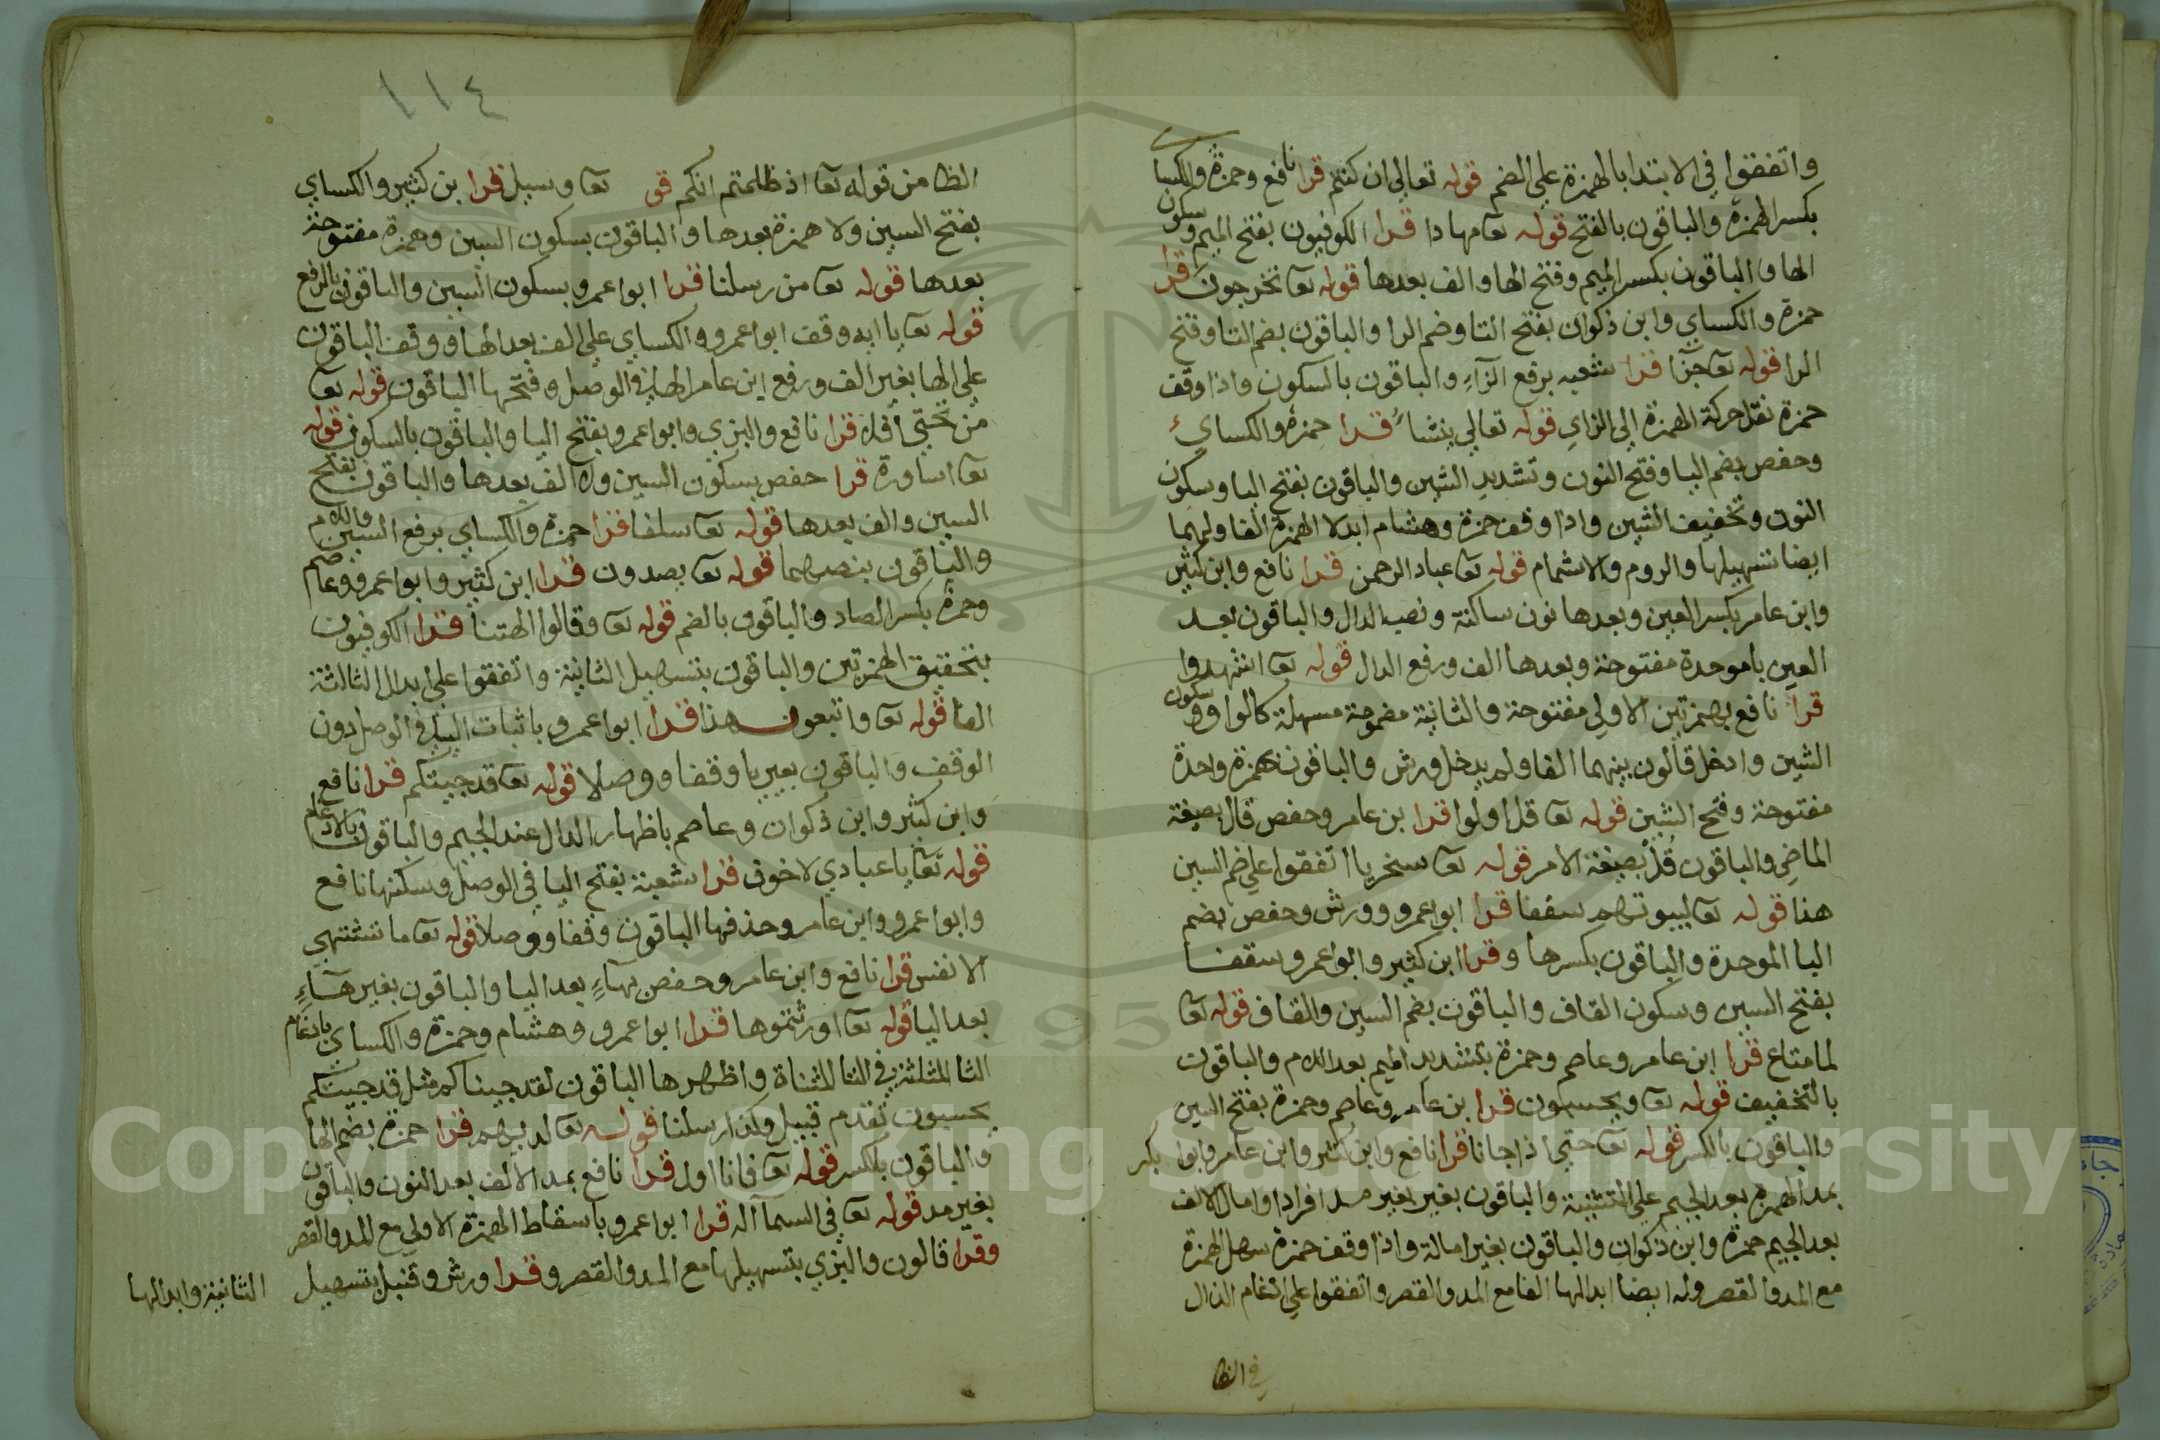 واتفقوا في الابتدا بالهمزة علي الضم قوله تعالي ان كنتم قرا نافع وحمزة والكساي
بكسر الهمزة والباقون بالفتح قوله تعا مهادا قرا الكوفيون بفتح الميم وسكون
الها والباقون بكسر الميم وفتح الها والف بعدها قوله تعا تخرجون قرا
حمزة والكساي وابن ذكوان بفتح التا وضم الرا والباقون بضم التا وفتح
الرا قوله تعا جزا قرا شعبه برفع الزاء والباقون بالسكون واذا وقف
حمزة نقل حركة الهمزة الي الزاي قوله تعالي ينشأ قرا حمزه والكساي
وحفص بضم اليا وفتح النون وتشديد الشين والباقون بفتح اليا وسكون
النون وتخفيف الشين واذا وقف حمزة وهشام ابدلا الهمزة الفا ولهما
ايضا تسهيلها والروم والاشمام قوله تعا عباد الرحمن قرا نافع وابن كثير
وابن عامر بكسر العين وبعدها نون ساكنة ونصب الدال والباقون بعد
العين با موحدة مفتوحة وبعدها الف ورفع الدال قوله تعا اشهدوا
قرا نافع بهمزتين الاولي مفتوحة والثانية مضمومة مسهلة كالواو وسكون
الشين وادخل قالون بينهما الفا ولم يدخل ورش والباقون بهمزة واحدة
مفتوحة وفتح الشين قوله تعا قل اولوا قرا بن عامر وحفص قال بصيغة
الماضي والباقون قل بصيغة الامر قوله تعا سخريا اتفقوا علي ضم السين
هنا قوله تعا لبيوتهم سقفا قرا ابو عمرو وورش وحفص بضم
البا الموحدة والباقون بكسرها وقرا ابن كثير وابو عمرو سقفا
بفتح السين وسكون القاف والباقون بضم السين والقاف قوله تعا
لما متاع قرا ابن عامر وعاصم وحمزة بتشديد الميم بعد اللام والباقون
بالتخفيف قوله تعا ويحسبون قرا بن عامر وعاصم وحمزة بفتح السين
والباقون بالكسر قوله تعا حتي اذا جانا قرا نافع وابن كثير وابن عامر وابوا بكر
بمد الهمزة بعد الجيم علي التثنية والباقون بغير بغير مد افرادا وامال الالف
بعد الجيم حمزة وابن ذكوان والباقون بغير امالة واذا وقف حمزة سهل الهمزة
مع المد والقصر وله ايضا ابدالها الفا مع المد والقصر واتفقوا علي ادغام الذال
في الظا
١١٤
الظا من قوله تعا اذ ظلمتم انكم قو تعا وسيل قرا بن كثير والكساي
بفتح السين ولا همزة بعدها والباقون بسكون السين وهمزة مفتوحة
بعدها قوله تعا من رسلنا قرا ابوا عمرو بسكون السين والباقون بالرفع
قوله تعا يا ايه وقف ابوا عمرو والكساي علي الف بعد الها ووقف الباقون
علي الها بغير الف ورفع ابن عامر الها في الوصل وفتحها الباقون قوله تعا
من تحتي افلا قرا نافع والبزي وابوا عمرو بفتح اليا والباقون بالسكون قوله
تعا اساورة قرا حفص بسكون السين ولا الف بعدها والباقون بفتح
السين والف بعدها قوله تعا سلفا قرا حمزة والكساي برفع السين واللام
والباقون بنصبهما قوله تعا يصدون قرا ابن كثير وابوا عمرو وعاصم
وحمزة بكسر الصاد والباقون بالضم قوله تعا وقالوا الهتنا قرا الكوفيون
بتحقيق الهمزتين والباقون بتسهيل الثانية واتفقوا علي ابدال الثالثة
الفا قوله تعا واتبعون هذا قرا ابوا عمرو باثبات اليا في الوصل دون
الوقف والباقون بغير يا وقفا ووصلا قوله تعا قد جيتكم قرا نافع
وابن كثير وابن ذكوان وعاصم باظهار الدال عند الجيم والباقون بالادغام
قوله تعا يا عبادي لا خوف قرا شعبة بفتح اليا في الوصل وسكنها نافع
وابوا عمرو وابن عامر وحذفها الباقون وقفا ووصلا قوله تعا ما تشتهي
الانفس قرا نافع وابن عامر وحفص بهاء بعد اليا والباقون بغير هاء
بعد اليا قوله تعا اورثتموها قرا ابوا عمرو وهشام وحمزة والكساي بادغام
الثا المثلثة في التا المثناة واظهرها الباقون لقد جيناكم مثل قد جيتكم
يحسبون تقدم قبيل وكذا رسلنا قوله تعا لديهم قرا حمزة بضم الها
والباقون بالكسر قوله تعا فانا اول قرا نافع بمد الالف بعد النون والباقون
بغير مد قوله تعا في السما اله قرا ابوا عمرو باسقاط الهمزة الاولي مع المد والقصر
وقرا قالون والبزي بتسهيلها مع المد والقصر وقرا ورش وقنبل بتسهيل
الثانية وابدالها
Copyright © King Saud University